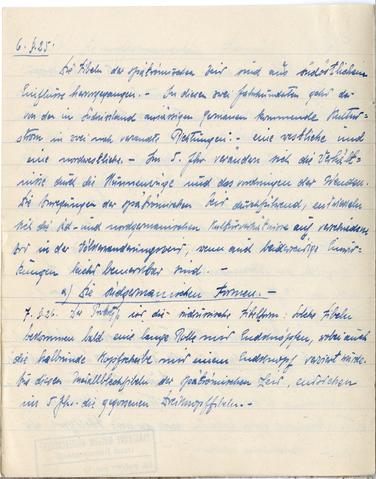 6. 3. 25.
Die Fibeln der spätrömischen Zeit sind aus südöstlichem
Einflüsse hervorgegangen. – In diesen zwei Jahrhunderten geht der
von der in Südrussland ansässigen Germanen kommende Kultur-
strom, in zwei noch verwandte Richtungen: – eine westliche und
eine nordwestliche. – Im 5. Jhr. verändern sich die Verhält-
nisse durch die Hunnenzüge und das vordringen der Wenden.
Die Bewegungen der spätrömischen Zeit durchführend, entwickeln
sich die süd- und nordgermanischen Kulturverhältnisse auf verschiedene
Art in der Völkerwanderungszeit, wenn auch beiderseitige Einwir-
kungen leicht bemerkbar sind. –
a) Die südgermanischen Formen. –
7. 3. 26. Der Prototyp ist die südrussische Fibelform: solche Fibeln
bekommen bald eine lange Rolle mit Endknöpfen, wobei auch
die halbrunde Kopfscheibe mit einem Endknopf verziert würde.
Aus diesen Metallblechfibeln der spätrömischen Zeit, entstehen
im 5. Jhr. die gegossenen Dreiknopffibeln. –